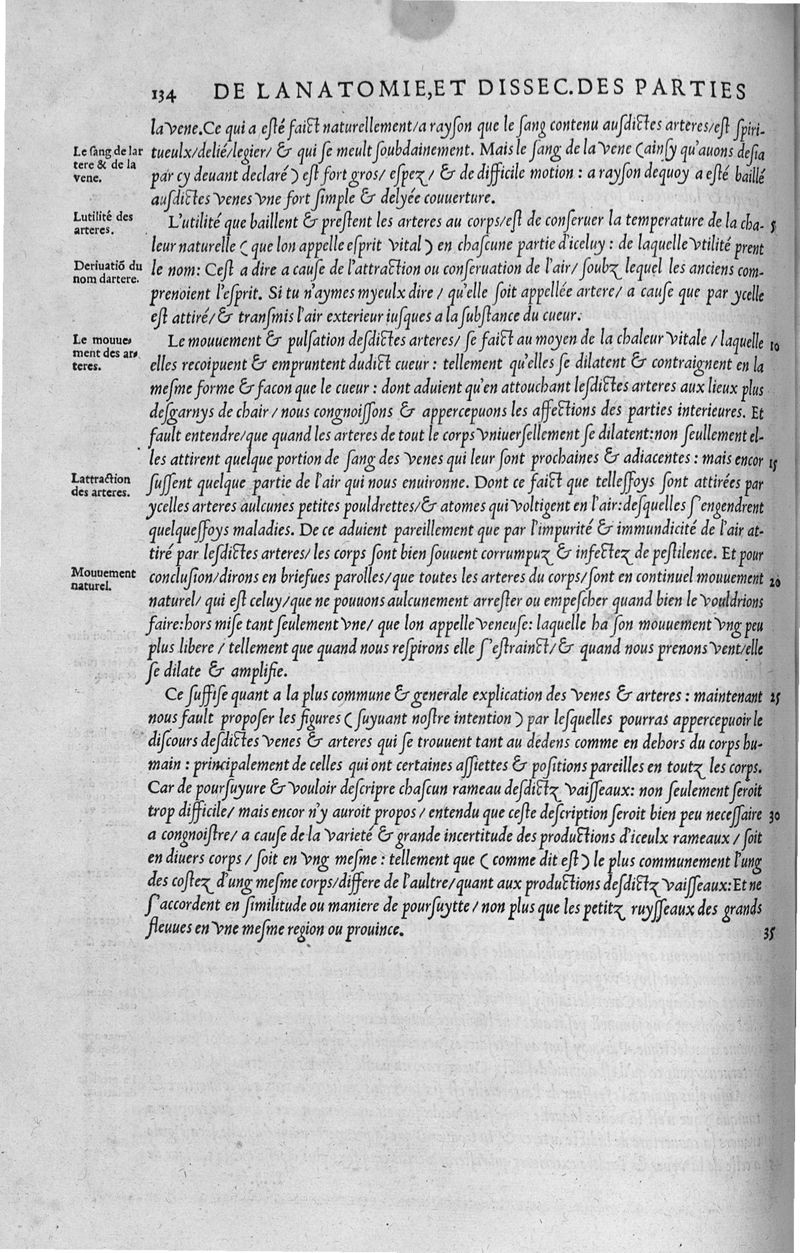 134 DE LANATOMIE, ET DISSEC. DES PARTIES
la vene. Ce qui a esté faict naturellement/a rayson que le sang contenu ausdictes arteres/est spiri-
Le sang de lar
tere & de la
vene.
tueulx/delié/legier/ & qui se meult soubdainement. Mais le sang de la vene (ainsy qu'auons desia
par cy deuant declaré) est fort gros/ espez/ & de difficile motion : a rayson dequoy a esté baillé
ausdictes venes vne fort simple & delyée couuerture.
Lutilité des
arteres.
L'utilité que baillent & prestent les arteres au corps/est de conseruer la temperature de la cha- 5
leur naturelle (que lon appelle esprit vital) en chascune partie d'iceluy : de laquelle vtilité prent
Deriuatiõ du
nom dartere.
le nom: Cest a dire a cause de l'attraction ou conseruation de l'air/ soubz lequel les anciens com-
prenoient l'esprit. Si tu n'aymes myeulx dire / qu'elle soit appellée artere/ a cause que par ycelle
est attiré/ & transmis l'air exterieur iusques a la substance du cueur.
Le mouue-
ment des ar-
teres.
Le mouuement & pulsation desdictes arteres/ se faict au moyen de la chaleur vitale / laquelle 10
elles recoipuent & empruntent dudict cueur : tellement qu'elles se dilatent & contraignent en la
mesme forme & facon que le cueur : dont aduient qu'en attouchant lesdictes arteres aux lieux plus
desgarnys de chair / nous congnoissons & appercepuons les affections des parties interieures. Et
fault entendre/que quand les arteres de tout le corps vniuersellement se dilatent: non seullement el-
les attirent quelque portion de sang des venes qui leur sont prochaines & adiacentes : mais encor 15
Lattraction
des arteres.
sussent quelque partie de l'air qui nous enuironne. Dont ce faict que telleffoys sont attirées par
ycelles arteres aulcunes petites pouldrettes/& atomes qui voltigent en l'air: desquelles s'engendrent
quelqueffoys maladies. De ce aduient pareillement que par l'impurité & immundicité de l'air at-
tiré par lesdictes arteres/ les corps sont bien souuent corrumpuz & infectez de pestilence. Et pour
Mouuement
naturel.
conclusion/dirons en briefues parolles/que toutes les arteres du corps/sont en continuel mouuement 20
naturel/ qui est celuy/que ne pouuons aulcunement arrester ou empescher quand bien le vouldrions
faire: hors mise tant seulement vne/ que lon appelle veneuse: laquelle ha son mouuement vng peu
plus libere / tellement que quand nous respirons elle s'estrainct/ & quand nous prenons vent/elle
se dilate & amplifie.
Ce suffise quant a la plus commune & generale explication des venes & arteres : maintenant 25
nous fault proposer les figures (suyuant nostre intention) par lesquelles pourras appercepuoir le
discours desdictes venes & arteres qui se trouuent tant au dedens comme en dehors du corps hu-
main : principalement de celles qui ont certaines assiettes & positions pareilles en toutz les corps.
Car de poursuyure & vouloir descripre chascun rameau desdictz vaisseaux: non seulement seroit
trop difficile/ mais encor n'y auroit propos / entendu que ceste description seroit bien peu necessaire 30
a congnoistre/ a cause de la varieté & grande incertitude des productions d'iceulx rameaux / soit
en diuers corps / soit en vng mesme : tellement que (comme dit est) le plus communement l'ung
des costez d'ung mesme corps/differe de l'aultre/quant aux productions desdictz vaisseaux: Et ne
s'accordent en similitude ou maniere de poursuytte / non plus que les petitz ruysseaux des grands
fleuues en vne mesme region ou prouince. 35